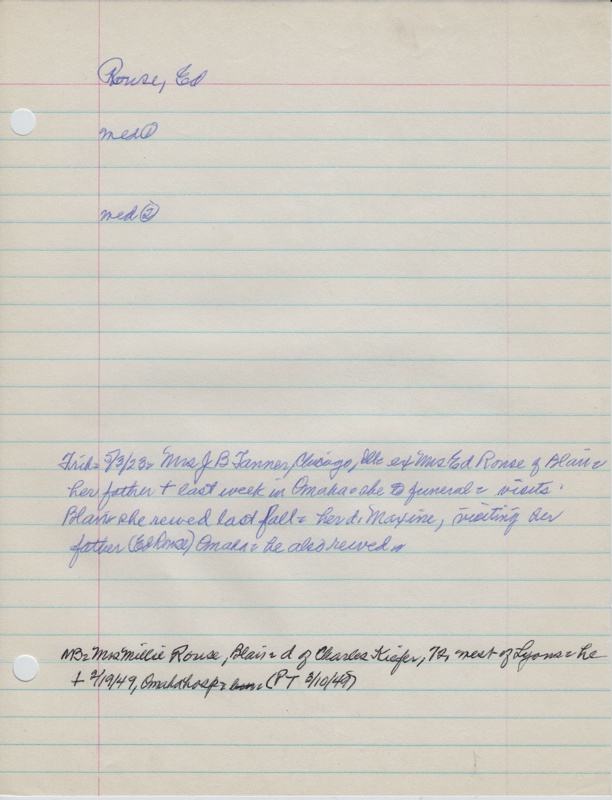 Rouse, Ed
med ①
med ②
Trib= 5/3/23= Mrs J B Tanner, Chicago, Ill= ex Mrs Ed Rouse of Blair=
her father + last week in Omaha= she to funeral= visits
Blair= she rewed last fall= her d, Maxine, visiting her
father (Ed Rouse) Omaha= he also rewed
NB= Mrs Millie Rouse, Blair= d of Charles Kiefer, 72, west of Lyons= he
+ 2/19/49, Omaha hosp= (PT 3/10/49)